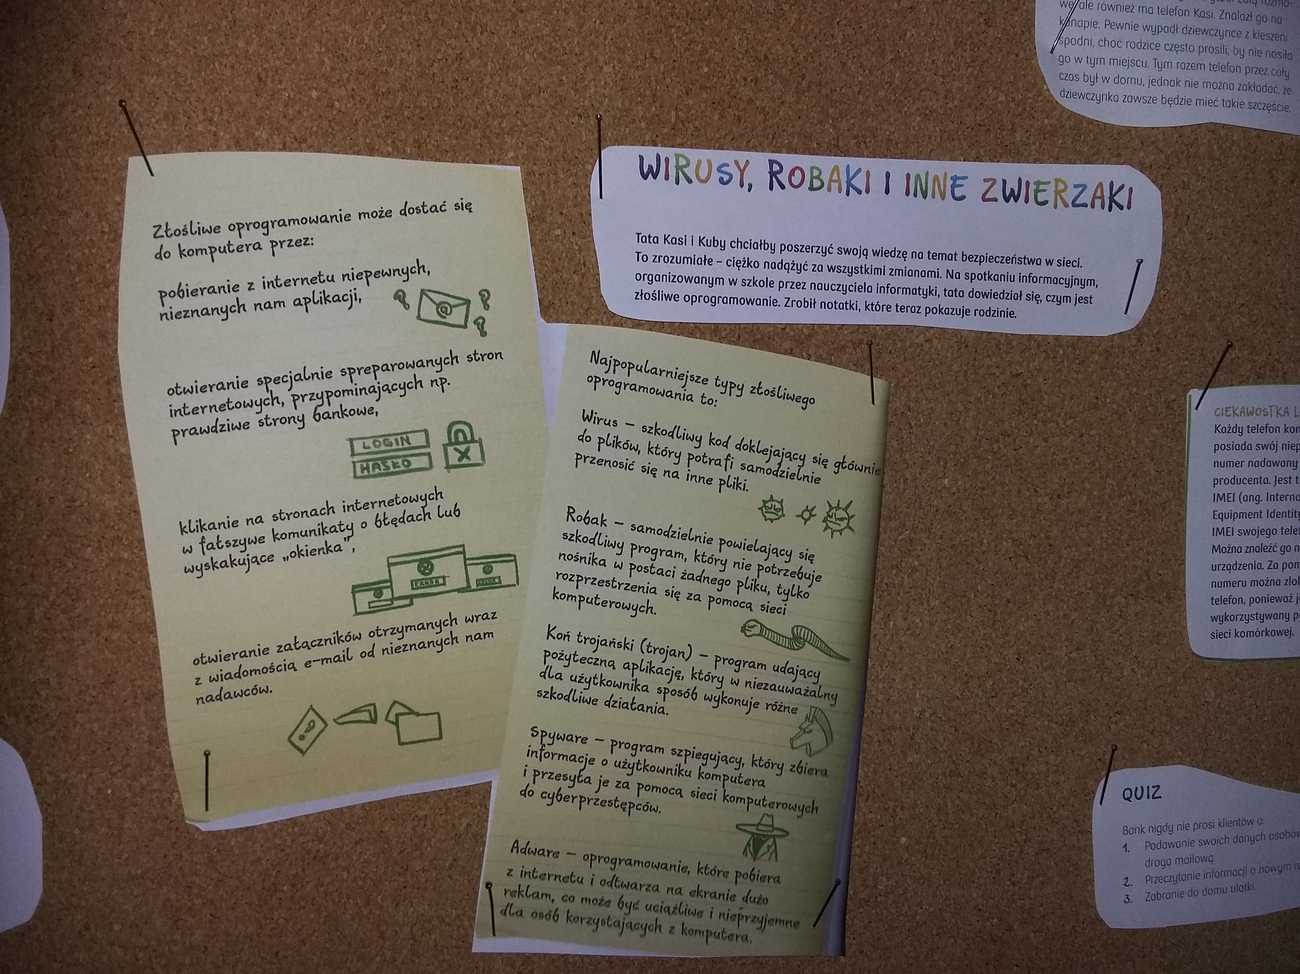 Złośliwe oprogramowanie może dostać się
do komputera przez:
pobieranie z internetu niepewnych,
nieznanych nam aplikacji,
@
otwieranie specjalnie spreparowanych stron
internetowych, przypominających np.
prawdziwe strony bankowe,
LOGIN
HASŁO
klikanie na stronach internetowych
w fałszywe komunikaty o błędach lub
wyskakujące „okienka”,
otwieranie załączników otrzymanych wraz
z wiadomością e-mail od nieznanych nam
nadawców.
WIRUSY, ROBAKI I INNE ZWIERZAKI
Tata Kasi i Kuby chciałby poszerzyć swoją wiedzę na temat bezpieczeństwa w sieci.
To zrozumiałe – ciężko nadążyć za wszystkimi zmianami. Na spotkaniu informacyjnym,
organizowanym w szkole przez nauczyciela informatyki, tata dowiedział się, czym jest
złośliwe oprogramowanie. Zrobił notatki, które teraz pokazuje rodzinie.
Najpopularniejsze typy złośliwego
oprogramowania to:
Wirus – szkodliwy kod doklejający się głównie
do plików, który potrafi samodzielnie
przenosić się na inne pliki.
Robak – samodzielnie powielający się
szkodliwy program, który nie potrzebuje
nośnika w postaci żadnego pliku, tylko
rozprzestrzenia się za pomocą sieci
komputerowych.
Koń trojański (trojan) – program udający
pożyteczną aplikację, który w niezauważalny
dla użytkownika sposób wykonuje różne
szkodliwe działania.
Spyware – program szpiegujący, który zbiera
informacje o użytkowniku komputera
i przesyła je za pomocą sieci komputerowych
do cyberprzestępców.
Adware – oprogramowanie, które pobiera
z internetu i odtwarza na ekranie dużo
reklam, co może być uciążliwe i nieprzyjemne
dla osób korzystających z komputera.
ale również ma telefon Kasi. Znalazł go na
kanapie. Pewnie wypadł dziewczynce z kieszeni
spodni, choć rodzice często prosili, by nie nosiła
go w tym miejscu. Tym razem telefon przez cały
czas był w domu, jednak nie można zakładać, że
dziewczynka zawsze będzie mieć takie szczęście.
CIEKAWOSTKA
Każdy telefon
posiada swój
numer nadawany
producenta. Jest
IMEI (ang.
Equipment
IMEI swojego
Można znaleźć go
urządzenia. Za
numeru można
telefon, ponieważ
wykorzystywany
sieci komórkowej.
QUIZ
Bank nigdy nie prosi klientów o:
1. Podawanie swoich danych
drogą mailową.
2. Przeczytanie informacji o nowym
3. Zabranie do domu ulotki.